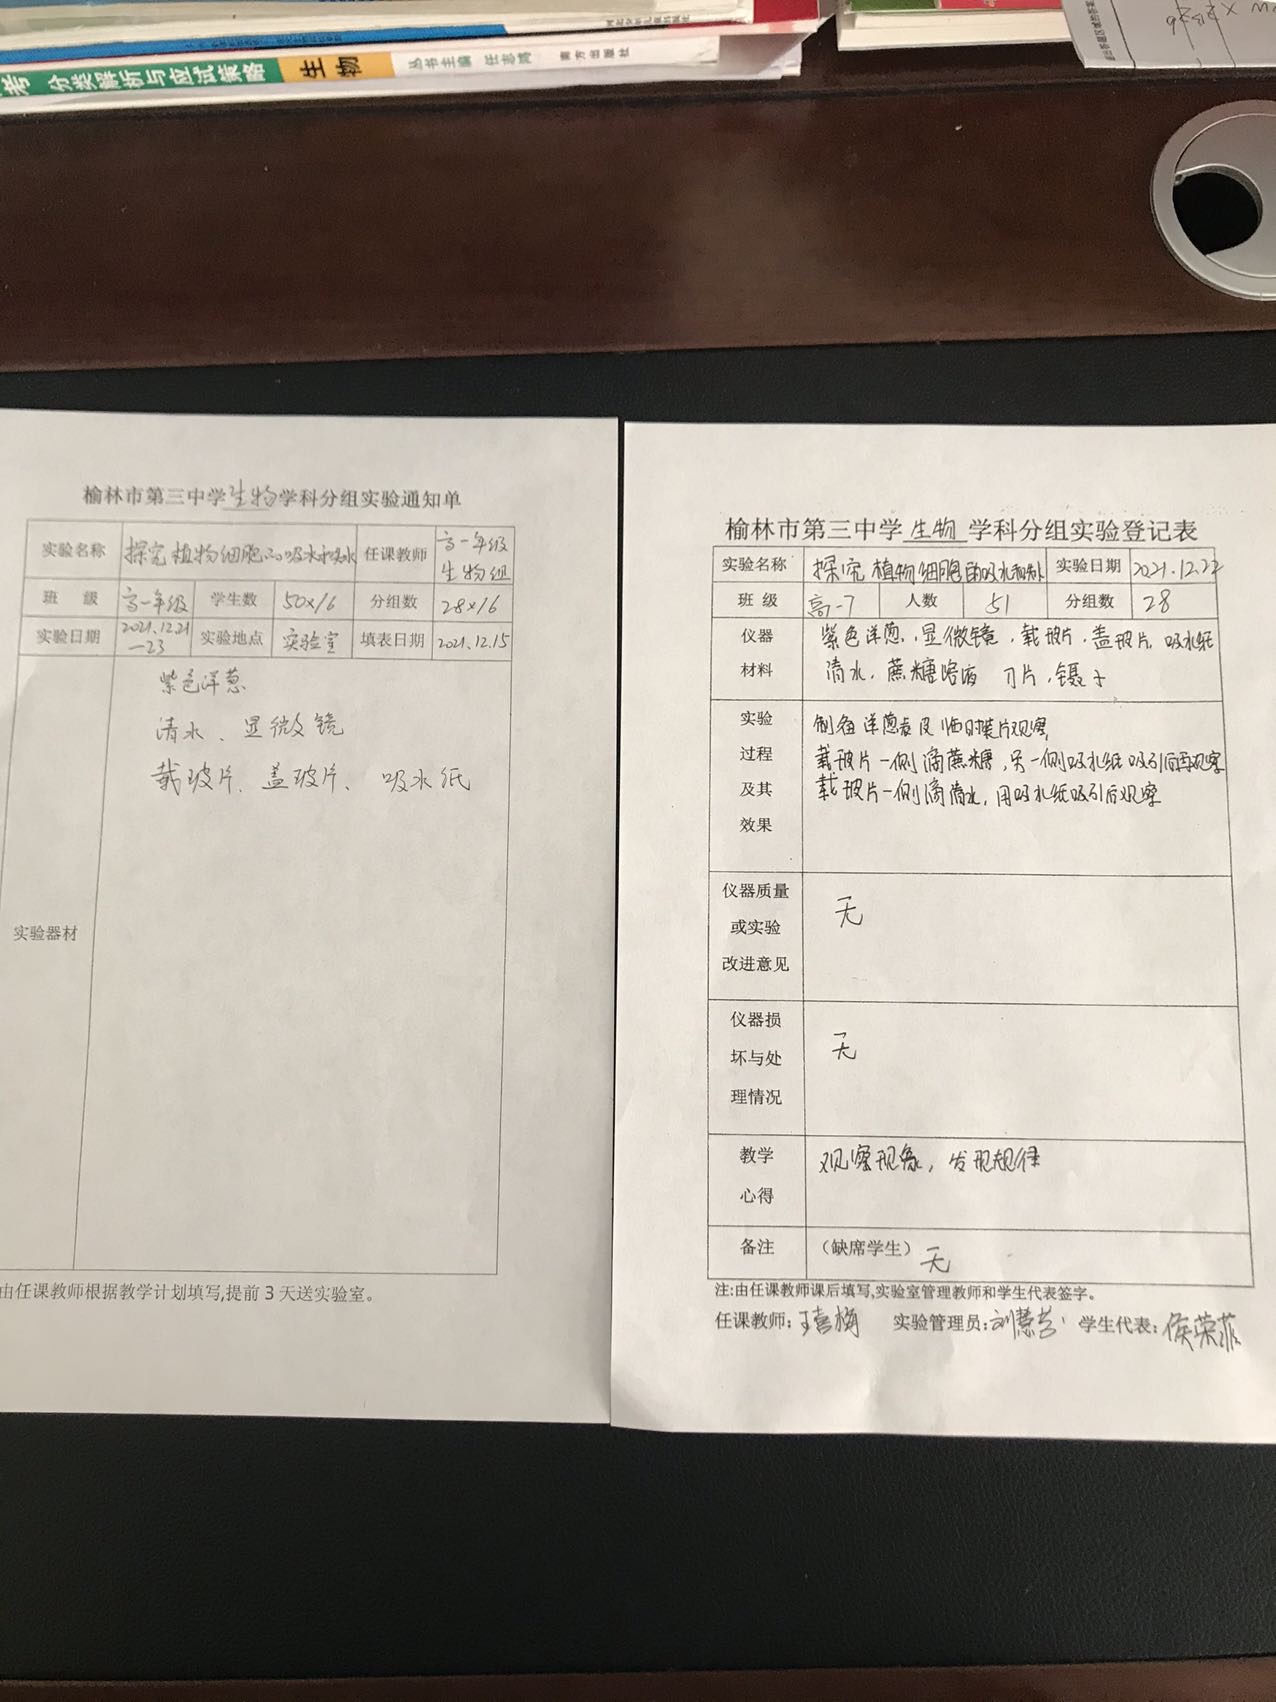 考 分类解析与应试策略 生物 丛书主编 任志鸿 南方出版社
榆林市第三中学生物学科分组实验通知单
实验名称 探究植物细胞的吸水和失水 任课教师 高一年级生物组
班 级 高一年级 学生数 50×16 分组数 28×16
实验日期 2021.12.21—23 实验地点 实验室 填表日期 2021.12.15
实验器材
紫色洋葱
清水、显微镜
载玻片、盖玻片、吸水纸
由任课教师根据教学计划填写,提前3天送实验室。
榆林市第三中学 生物 学科分组实验登记表
实验名称 探究植物细胞的吸水和 实验日期 2021.12.22
班 级 高一7 人数 51 分组数 28
仪器材料
紫色洋葱,显微镜,载玻片,盖玻片,吸水纸
清水,蔗糖溶液 刀片,镊子
实验过程及其效果
制备洋葱表皮临时装片观察,
载玻片一侧滴蔗糖,另一侧吸水纸吸引后再观察
载玻片一侧滴清水,用吸水纸吸引后观察
仪器质量或实验改进意见 无
仪器损坏与处理情况 无
教学心得 观察现象,发现规律
备注 (缺席学生) 无
注:由任课教师课后填写,实验室管理教师和学生代表签字。
任课教师:王喜梅 实验管理员:刘慧芸 学生代表:侯荣菲